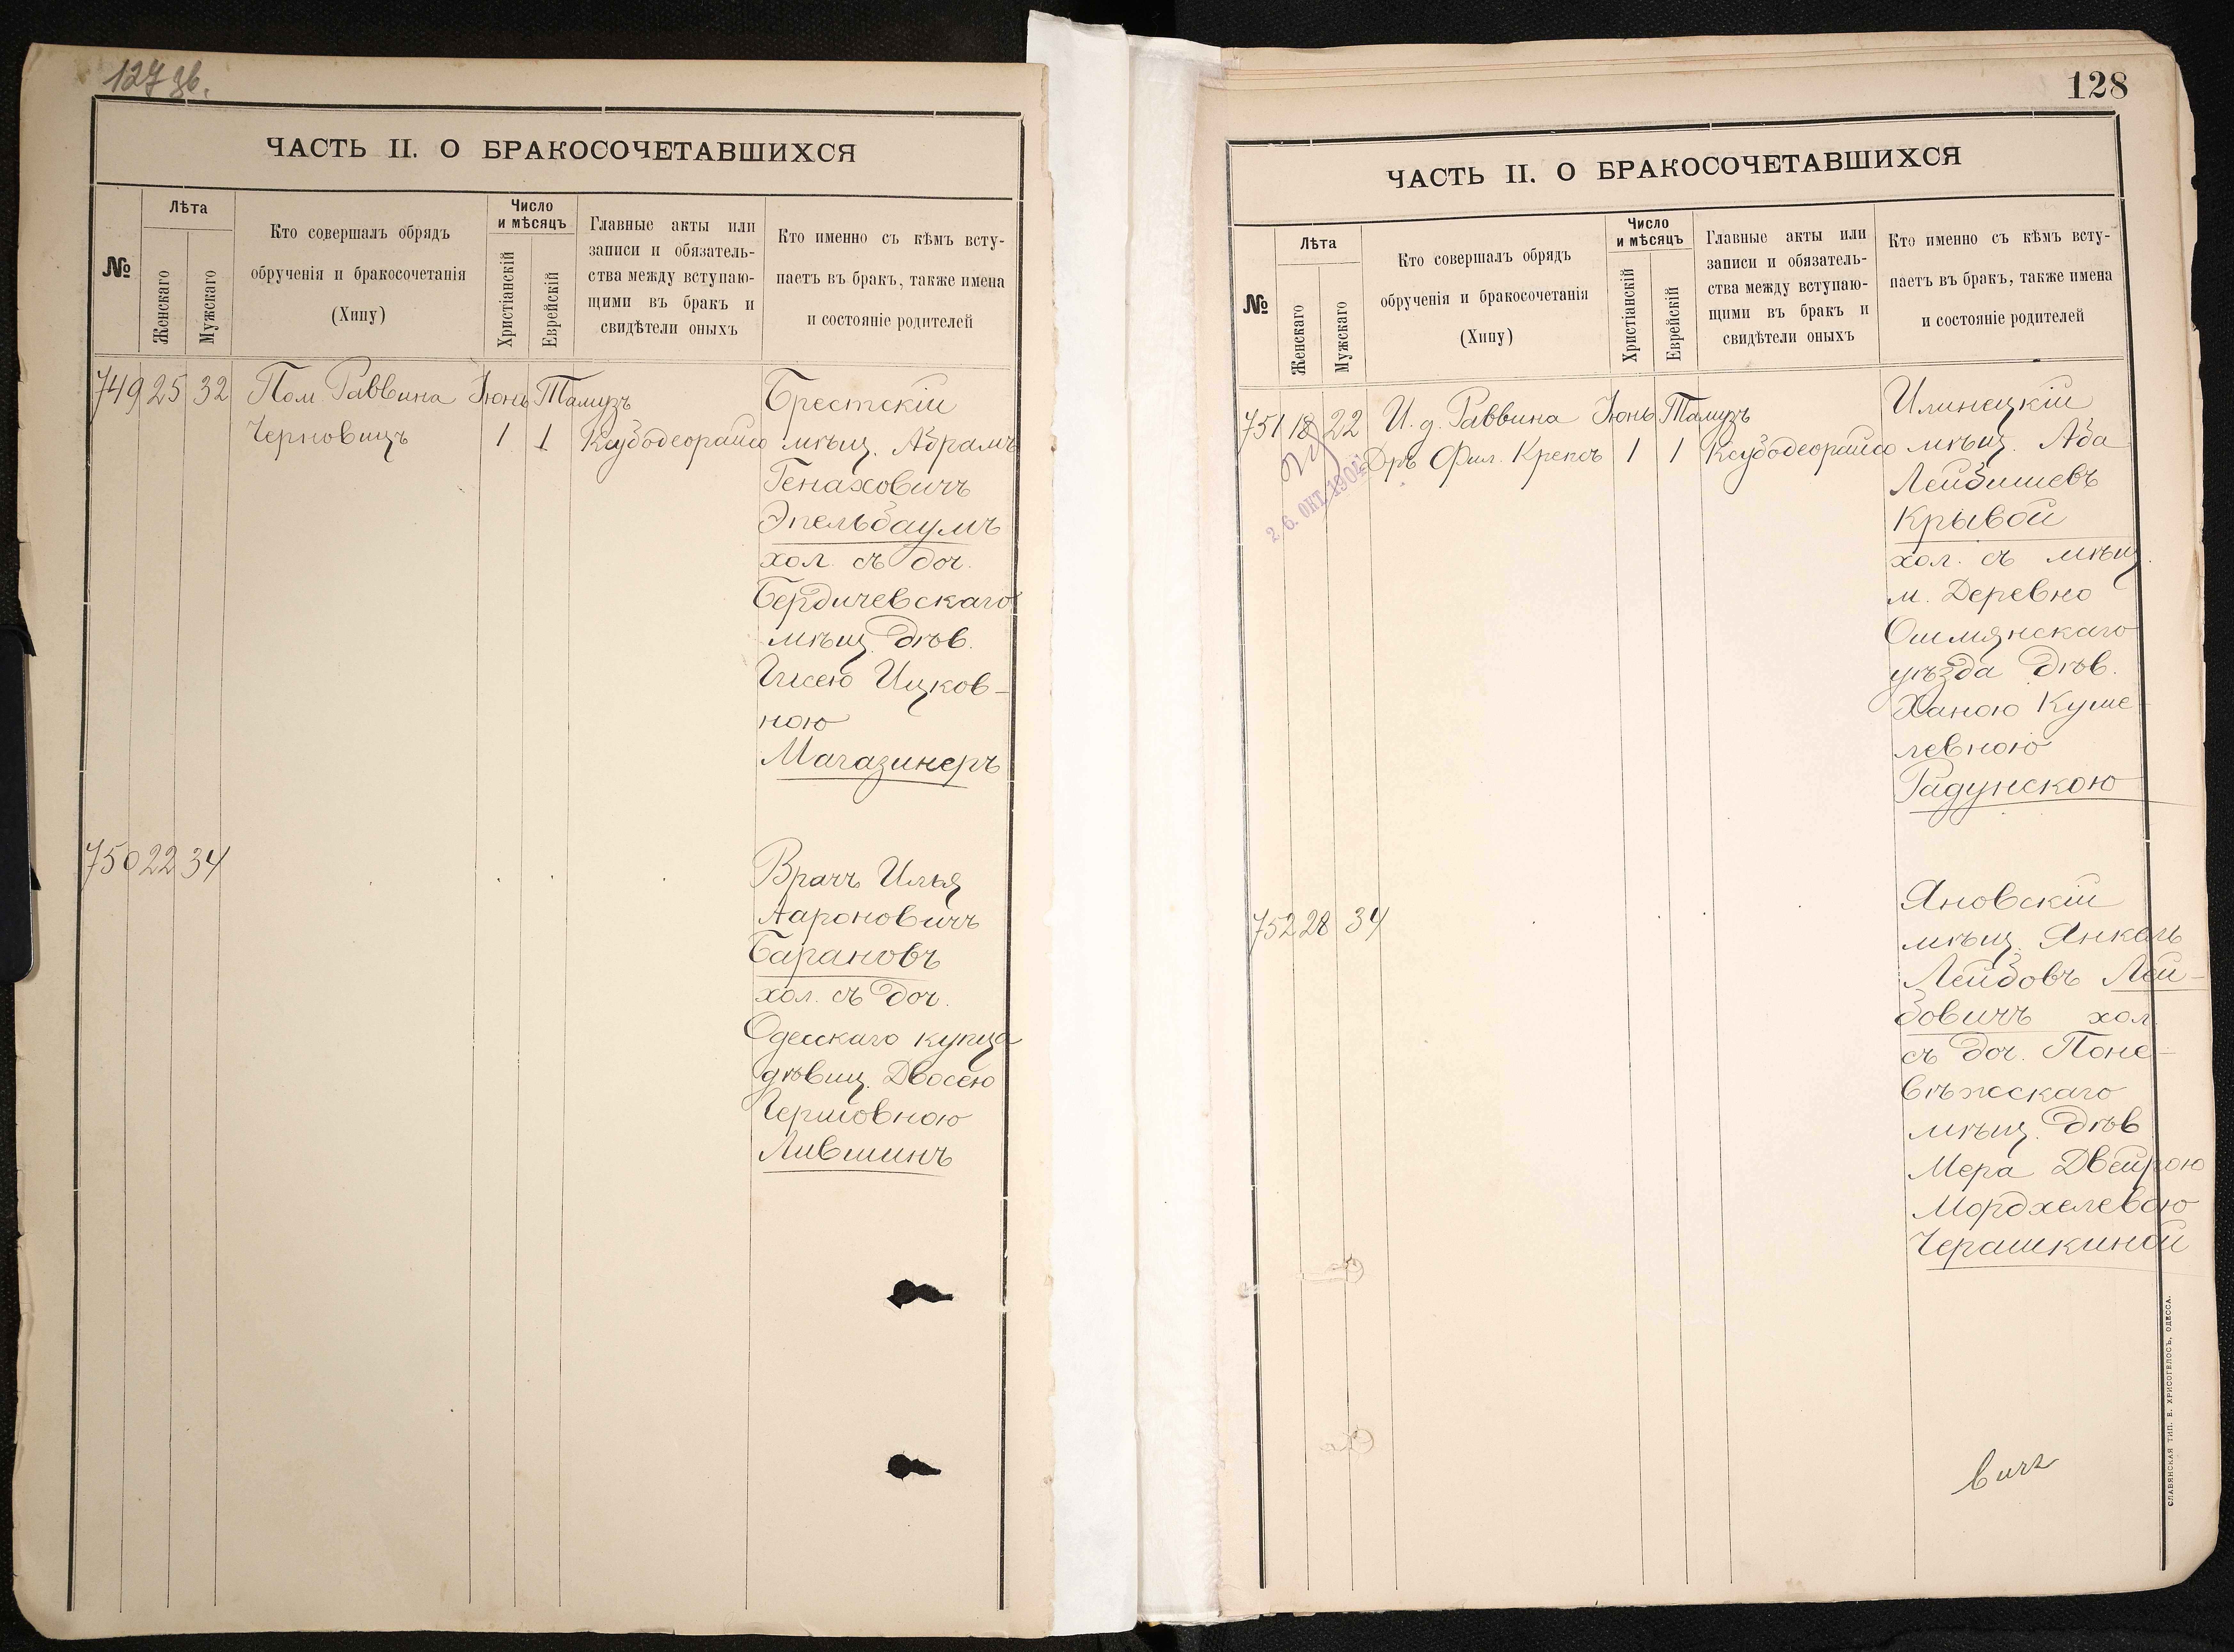 127 зв.
ЧАСТЬ II. О БРАКОСОЧЕТАВШИХСЯ
№
Лѣта
Женскаго
Мужскаго
Кто совершалъ обрядъ
обрученія и бракосочетанія
(Хипу)
Число
и мѣсяцъ
Христіанскій
Еврейскій
Главные акты или
записи и обязатель-
ства между вступаю-
щими въ бракъ и
свидѣтели оныхъ
Кто именно съ кѣмъ всту-
паетъ въ бракъ, также имена
и состояніе родителей
749 25 32 Пом. Раввина Іюнь Тамузъ Брестскій
Черновицъ 1 1 Ксубодеорайсо мѣщ. Абрамъ
Генаховичъ
Эпельбаумъ
хол. съ доч.
Бердичевскаго
мѣщ. дѣв.
Ицков-
ною
Магазинеръ
750 22 34 Врачъ Илья
Аароновичъ
Барановъ
хол. съ доч.
Одесскаго купца
дѣвиц. Двосею
Гершовною
Лившинъ
128
ЧАСТЬ II. О БРАКОСОЧЕТАВШИХСЯ
№
Лѣта
Женскаго
Мужскаго
Кто совершалъ обрядъ
обрученія и бракосочетанія
(Хипу)
Число
и мѣсяцъ
Христіанскій
Еврейскій
Главные акты или
записи и обязатель-
ства между вступаю-
щими въ бракъ и
свидѣтели оныхъ
Кто именно съ кѣмъ всту-
паетъ въ бракъ, также имена
и состояніе родителей
751 18 22 И. д. Раввина Іюнь Тамузъ Илинецкій
Дръ Фил. Крепсъ 1 1 Ксубодеорайсо мѣщ. Аба
26. ОКТ. 1904
Лейбишевъ
Крывой
хол. съ мѣщ.
м. Деревно
Ошмянскаго
уѣзда дѣв.
Ханою Куше-
левною
Радунскою
752 28 34 Яновскій
мѣщ. Янкель
Лейбовъ Лей-
бовичъ хол.
съ доч. Поне-
вѣжскаго
мѣщ. дѣв
Мера Двейрою
Мордхелевою
Черашкиной
вичъ
СЛАВЯНСКАЯ ТИП. Е. ХРИСОГЕЛОСЪ, ОДЕССА.